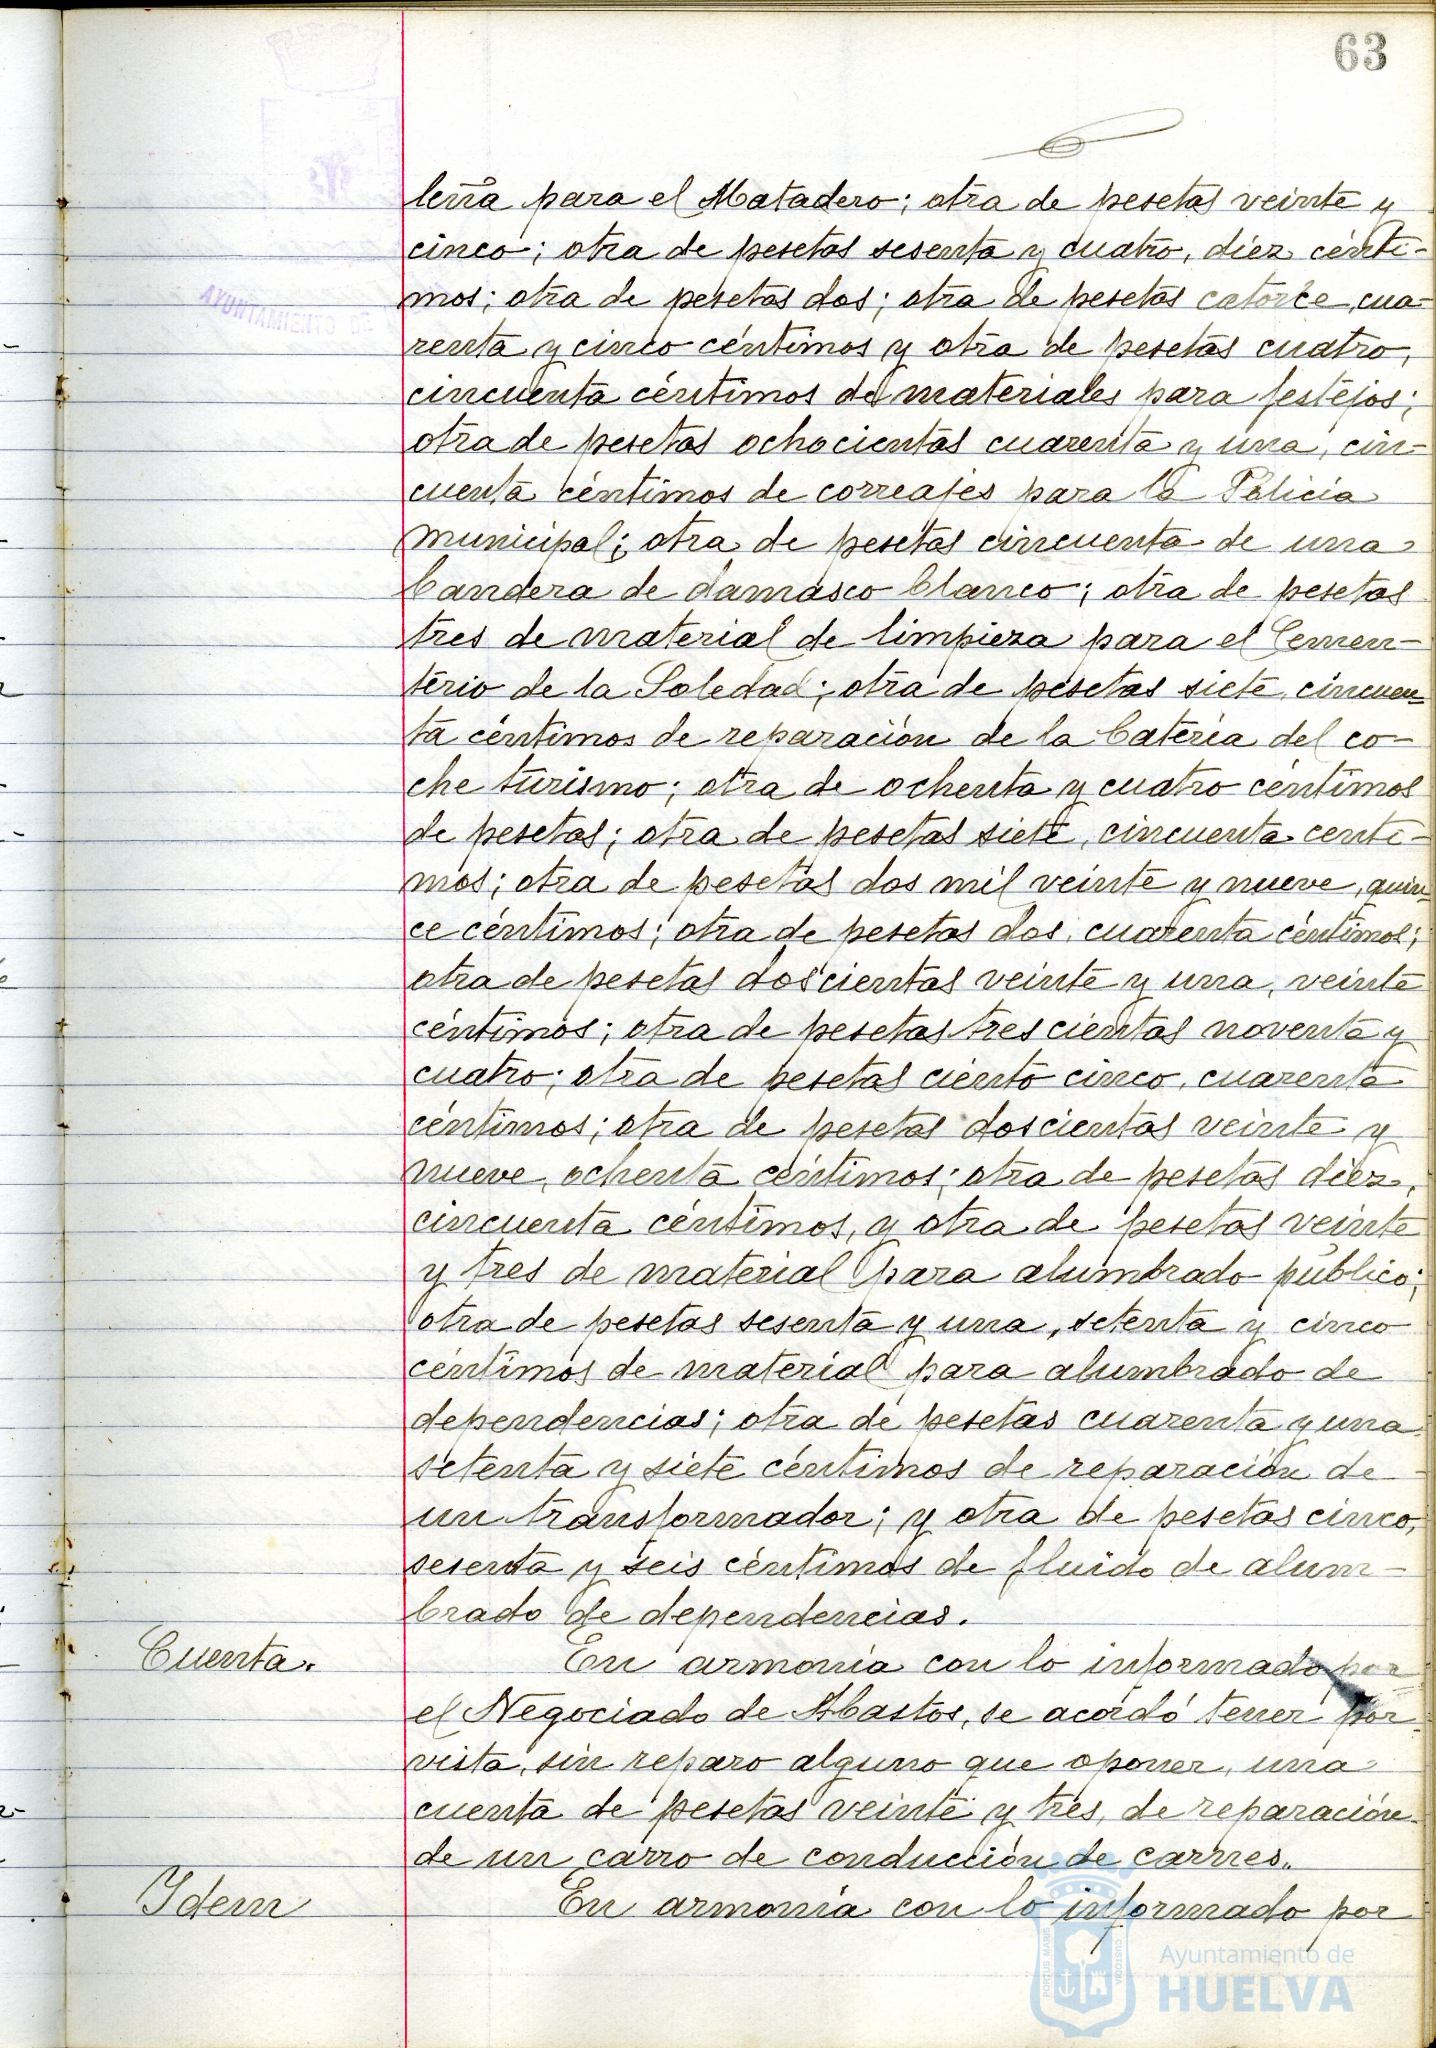 63
AYUNTAMIENTO DE
leña para el Matadero; otra de pesetas veinte y
cinco; otra de pesetas sesenta y cuatro, diez cénti-
mos; otra de pesetas dos; otra de pesetas catorce, cua-
renta y cinco céntimos y otra de pesetas cuatro,
cincuenta céntimos de materiales para festejos;
otra de pesetas ochocientas cuarenta y una, cin-
cuenta céntimos de correajes para la Policía
municipal; otra de pesetas cincuenta de una
bandera de damasco blanco; otra de pesetas
tres de material de limpieza para el Cemen-
terio de la Soledad; otra de pesetas siete, cincuen-
ta céntimos de reparación de la batería del co-
che turismo; otra de ochenta y cuatro céntimos
de pesetas; otra de pesetas siete, cincuenta centi-
mos; otra de pesetas dos mil veinte y nueve, quin-
ce céntimos; otra de pesetas dos, cuarenta céntimos;
otra de pesetas doscientas veinte y una, veinte
céntimos; otra de pesetas trescientas noventa y
cuatro; otra de pesetas ciento cinco, cuarenta
céntimos; otra de pesetas doscientas veinte y
nueve, ochenta céntimos; otra de pesetas diez,
cincuenta céntimos, y otra de pesetas veinte
y tres de material para alumbrado público;
otra de pesetas sesenta y una, setenta y cinco
céntimos de material para alumbrado de
dependencias; otra de pesetas cuarenta y una
setenta y siete céntimos de reparación de
un transformador; y otra de pesetas cinco,
sesenta y seis céntimos de fluido de alum-
brado de dependencias.
Cuenta. En armonía con lo informado por
el Negociado de Abastos, se acordó tener por
vista, sin reparo alguno que oponer, una
cuenta de pesetas veinte y tres, de reparación
de un carro de conducción de carnes.
Idem En armonía con lo informado por
PORTUS MARIS
CUSTODIA
Ayuntamiento de
HUELVA